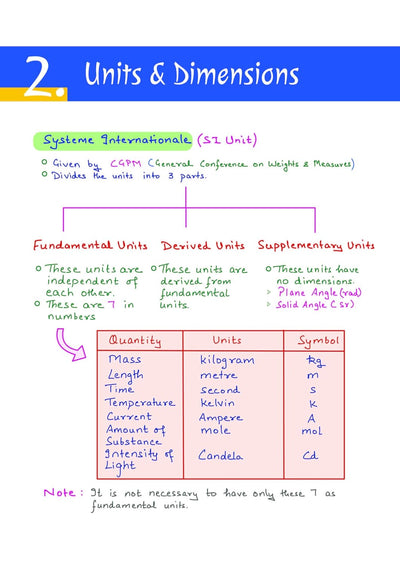 2. Units & Dimensions
Systeme Internationale (SI Unit)
Given by CGPM (General Conference on Weights & Measures)
Divides the units into 3 parts.
Fundamental Units Derived Units Supplementary Units
These units are
independent of
each other.
These are 7 in
numbers
These units are
derived from
fundamental
units.
These units have
no dimensions.
Plane Angle (rad)
Solid Angle (Sr)
Quantity Units Symbol
Mass kilogram kg
Length metre m
Time second s
Temperature kelvin k
Current Ampere A
Amount of mole mol
Substance
Intensity of Candela Cd
Light
Note : It is not necessary to have only these 7 as
fundamental units.